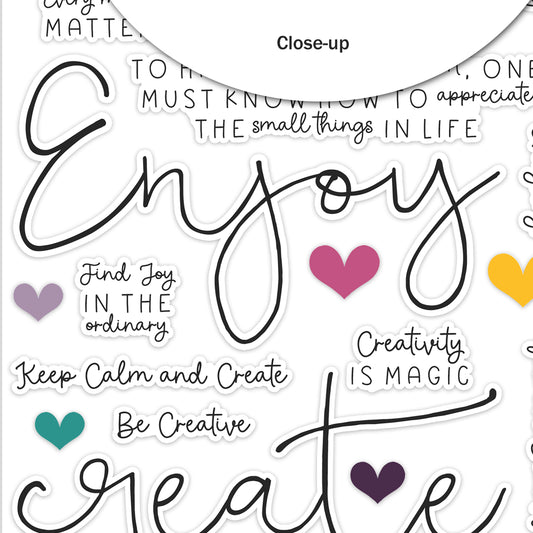 MATTE
Close-up
TO H
, ONE
MUST KNOW HOW TO appreciate
THE small things IN LIFE
Enjoy
Find Joy
IN THE
ordinary
Creativity
IS MAGIC
Keep Calm and Create
Be Creative
create